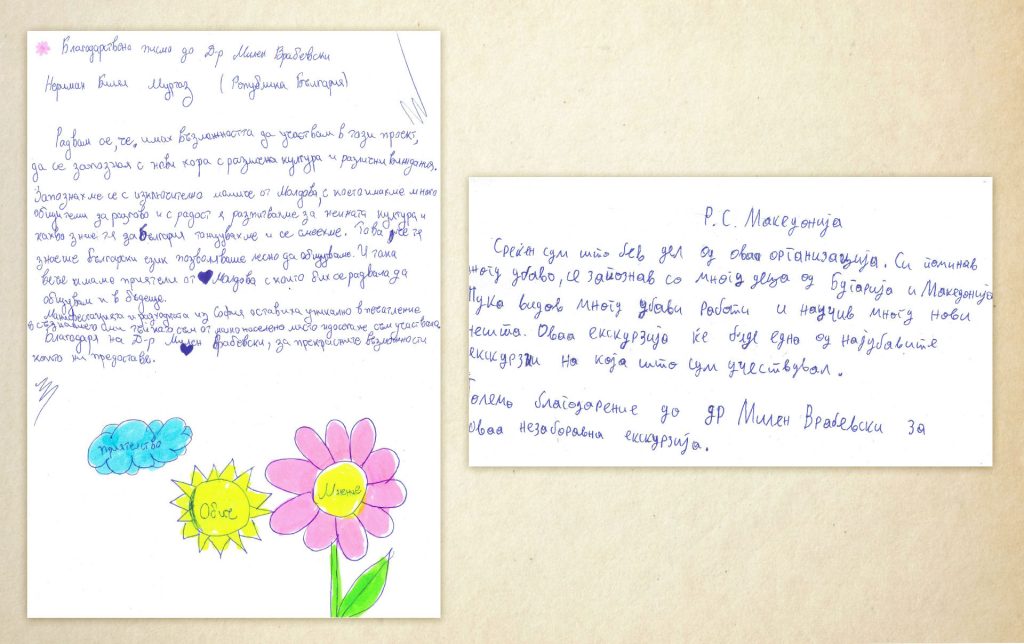 Благодарствено писмо до Д-р Милен Врабевски
Нериман Билял Муртаз (Република България)
Радвам се, че имах възможността да участвам в този проект,
да се запозная с нови хора с различна култура и различни виждания.
Запознахме се с изключително момиче от Молдова, с което имахме много
общи теми за разговор и с радост я разпитвахме за нейната култура и
какво знае тя за България танцувахме и се смеехме. Това, че тя
знаеше български език позволяваше лесно да общуваме. И така
вече имаме приятели от Молдова с които бих се радвала да
общувам и в бъдеще.
Манифестацията и разходката из София оставиха уникално впечатление
в съзнанието ми, тъй като сем от малко населено място
Благодаря на Д-р Милен Врабевски, за прекрасните възможности
които ни предоставя.
приятелство
Обич
Мнение
Р.С. Македонија
Среќен сум што бев дел од оваа организација. Си поминав
многу убаво, се запознав со многу деца од Бугарија и Македонија
Тука видов многу убави работи и научив многу нови
нешта. Оваа екскурзија ќе биде една од најубавите
екскурзии на која што сум учествувал.
Големо благодарение до др Милен Врабевски за
оваа незаборавна екскурзија.